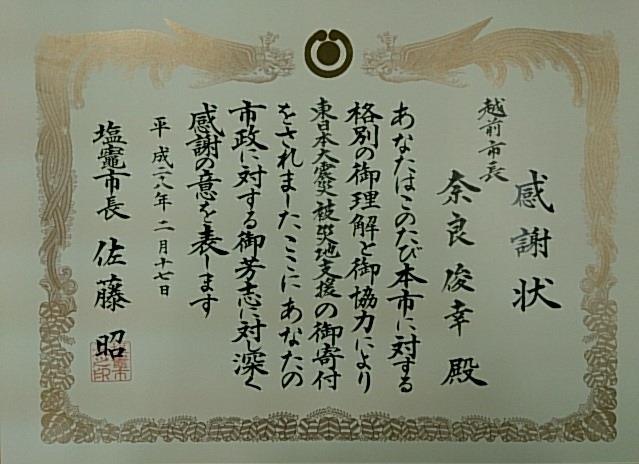 感謝状
越前市長
奈良俊幸殿
あなたはこのたび本市に対する
格別の御理解と御協力により
東日本大震災被災地支援の御寄付
をされました、ここにあなたの
市政に対する御芳志に対し深く
感謝の意を表します
平成二八年二月十七日
塩竈市長 佐藤昭